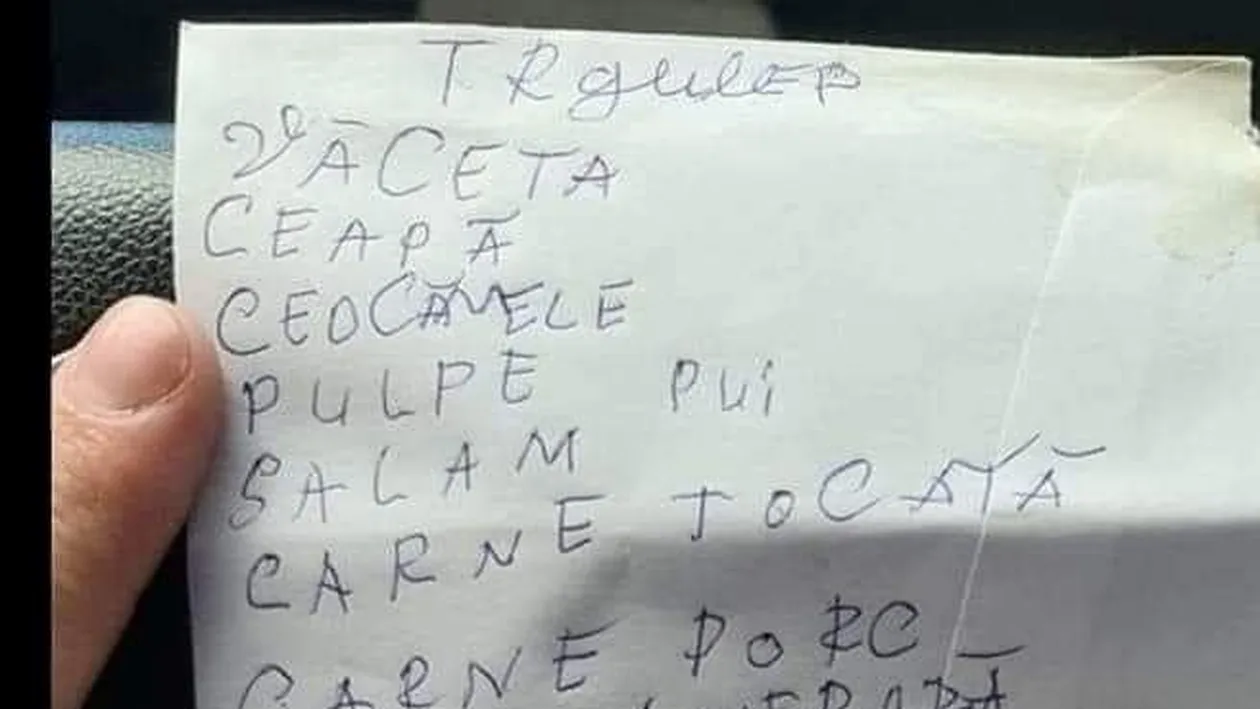 VĂCETA
CEAPĂ
CEOCĂNELE
PULPE PUI
SALAM
CARNE TOCATĂ
CARNE PORC
CARNE